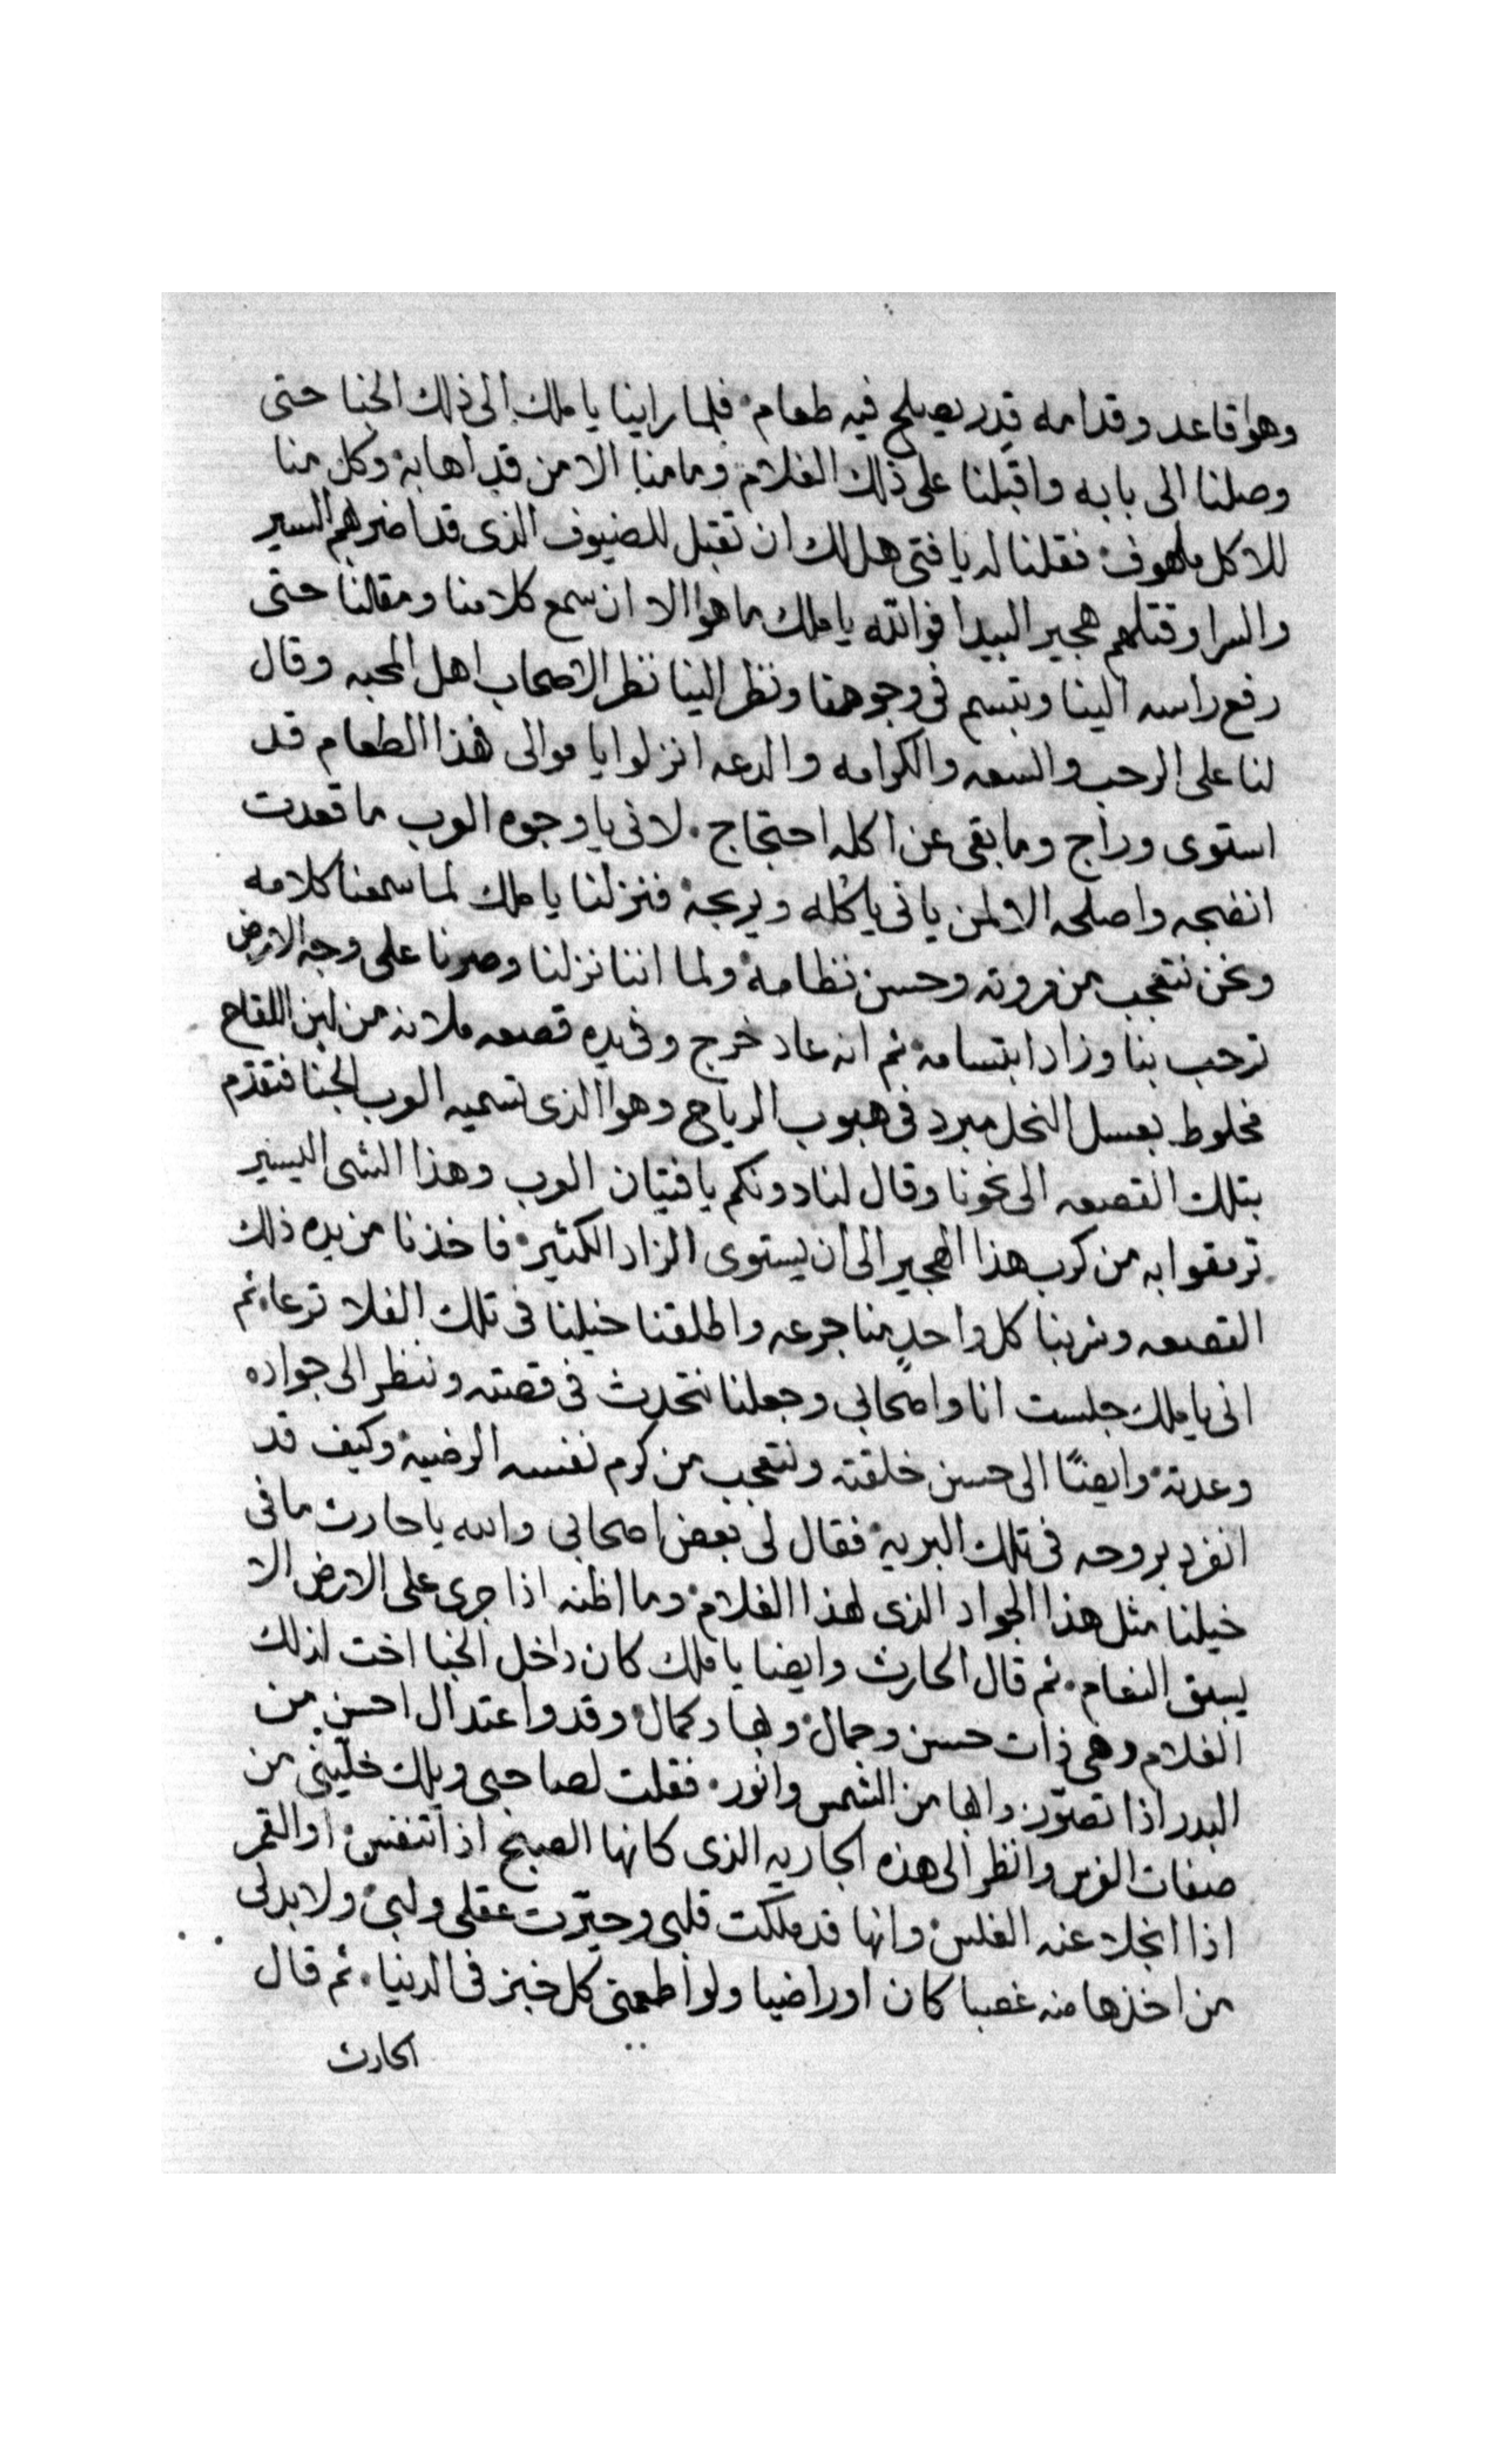 وهوا قاعد وقدامه قِدر يصلح فيه طعام فلما راينا يا ملك الى ذلك الخبا حتى
وصلنا الى بابه واقبلنا على ذلك الغلام وما منا الا من قد اهابه وكل منا
للاكل ملهوف فقلنا له يا فتى هل لك ان تقبل للضيوف الذى قد اضرهم السير
والسرا وقتلهم هجير البيدا فوالله يا ملك ما هوا الا ان سمع كلامنا ومقالنا حتى
رفع راسه الينا وتبسم فى وجوهنا ونظر الينا نظر الاصحاب اهل المحبه وقال
لنا على الرحب والسعه والكرامه والدعه انزلوا يا موالى هذا الطعام قد
استوى وراج وما بقى عن اكله احتجاج لانى يا وجوه العرب ما قعدت
انضجه واصلحه الا لمن ياتى ياكله ويربحه فنزلنا يا ملك لما سمعنا كلامه
ونحن نتعجب من مروته وحسن نظامه ولما اننا نزلنا وصرنا على وجه الارض
ترحب بنا وزاد ابتسامه ثم انه عاد خرج وفى يده قصعه ملانه من لبن اللقاح
مخلوط بعسل النحل مبرد فى هبوب الرياح وهوا الذى تسميه العرب الجنا فتقدم
بتلك القصعه الى نحونا وقال لنا دونكم يا فتيان العرب وهذا الشى اليسير
ترمقوا به من كرب هذا الهجير الى ان يستوى الزاد الكثير فاخذنا من يده ذلك
القصعه وشربنا كل واحدٍ منا جرعه واطلقنا خيلنا فى تلك الفلا ترعا ثم
انى يا ملك جلست انا واصحابى وجعلنا نتحدث فى قصته وننظر الى جواده
وعدته وايضًا الى حسن خلقته ونتعجب من كرم نفسه الرضيه وكيف قد
انفرد بروحه فى تلك البريه فقال لى بعض اصحابى والله يا حارث ما فى
خيلنا مثل هذا الجواد الذى لهذا الغلام وما اظنه اذا جرى على الارض الا
يسبق النعام ثم قال الحارث وايضا يا ملك كان داخل الخبا اخت لذلك
الغلام وهى ذات حسن وجمال وبها وكمال وقد واعتدال احسن من
البدر اذا تصوّر وابها من الشمس وانور فقلت لصاحبى ويلك خلّينى من
صفات الفرس وانظر الى هذه الجاريه الذى كانها الصبح اذا تنفس او القمر
اذا انجلا عنه الغلس وانها قد ملكت قلبى وحيّرت عقلى ولبى ولا بد لى
من اخذها منه غصبا كان او راضيا ولو اطعمنى كل خبز فى الدنيا ثم قال
الحارث